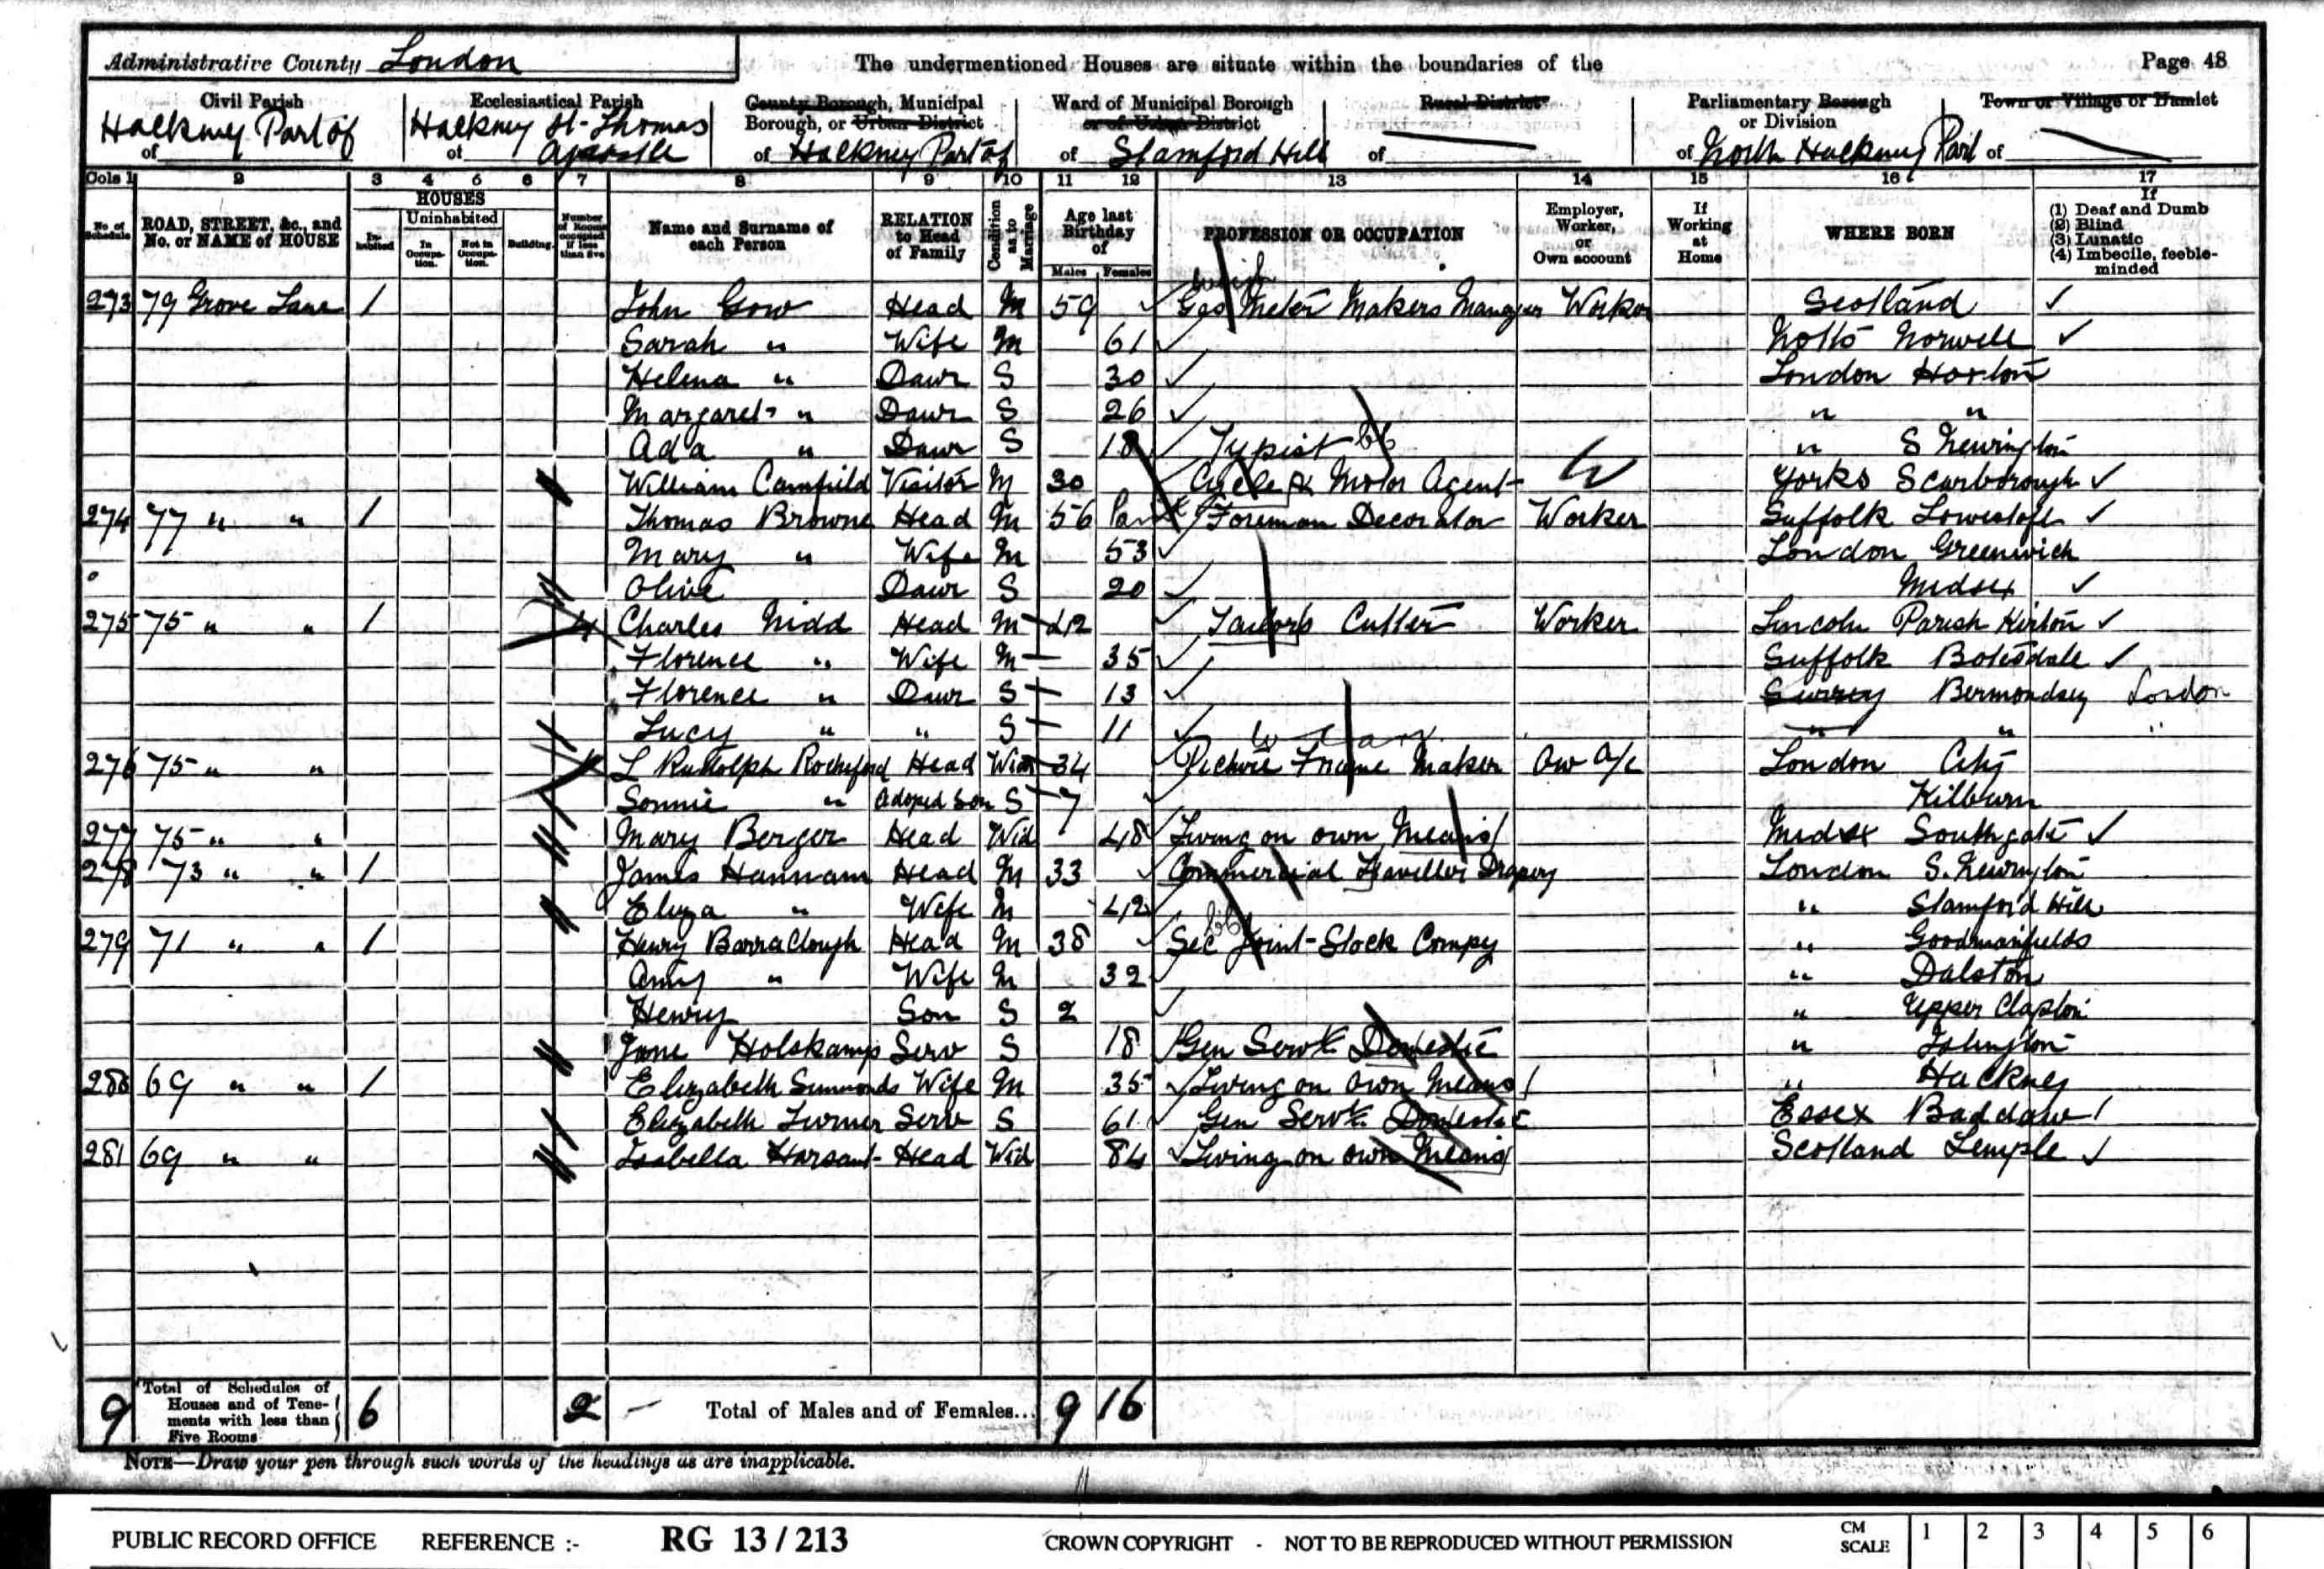 Administrative County London The undermentioned Houses are situate within the boundaries of the Page 48
Civil Parish Ecclesiastical Parish County Borough, Municipal Borough, or Urban District Ward of Municipal Borough or of Urban District Rural District Parliamentary Borough or Division Town or Village or Hamlet
of Hackney Part of of Hackney St. Thomas Apostle of Hackney Part of of Stamford Hill of of North Hackney Part of
Cols 1 2 3 4 5 6 7 8 9 10 11 12 13 14 15 16 17
No. of Schedule ROAD, STREET, &c., and No. or NAME of HOUSE HOUSES Inhabited Uninhabited In Occupation. Not in Occupation. Building. Number of Rooms occupied if less than five Name and Surname of each Person RELATION to Head of Family Condition as to Marriage Age last Birthday of Males Females PROFESSION OR OCCUPATION Employer, Worker, or Own account If Working at Home WHERE BORN If (1) Deaf and Dumb (2) Blind (3) Lunatic (4) Imbecile, feeble-minded
273 79 Grove Lane 1 John Gow Head M 59 Gas Meter Makers Manager Worker Scotland
Sarah " Wife M 61 Notts Norwell
Helena " Dawr S 30 London Hoxton
Margaret " Dawr S 26 " "
Ada " Dawr S 18 Typist " S Newington
William Camfield Visitor M 30 Cycle & Motor Agent W Yorks Scarborough
274 77 " " 1 Thomas Browne Head M 56 Foreman Decorator Worker Suffolk Lowestoft
Mary " Wife M 53 London Greenwich
Olive Dawr S 20 Midsex
275 75 " " 1 4 Charles Nidd Head M 42 Tailors Cutter Worker Lincoln Parish Kirton
Florence " Wife M 35 Suffolk Botesdale
Florence " Dawr S 13 Surrey Bermondsey London
Lucy " " S 11 " " "
276 75 " " L Rudolph Rocheford Head Wid 34 Picture Frame Maker Ow A/c London City
Sonnie " Adoped Son S 7 Kilburn
277 75 " " Mary Berger Head Wid 48 Living on own Means Midsx Southgate
278 73 " " 1 James Hannam Head M 33 Commercial Traveller Drapery London S. Newington
Eliza " Wife M 42 " Stamford Hill
279 71 " " 1 Henry Barraclough Head M 38 Sec Joint-Stock Compy " Goodmanfields
Amy " Wife M 32 " Dalston
Henry Son S 2 " Upper Clapton
Jane Holskamp Serv S 18 Gen Servt Domestic " Islington
280 69 " " 1 Elizabeth Simmonds Wife M 35 Living on own Means " Hackney
Elizabeth Turner Serv S 61 Gen Servt Domestic Essex Baddow
281 69 " " Isabella Harsant Head Wid 84 Living on own Means Scotland Temple
9 Total of Schedules of Houses and of Tenements with less than Five Rooms 6 2 Total of Males and of Females... 9 16
NOTE—Draw your pen through such words of the headings as are inapplicable.
PUBLIC RECORD OFFICE REFERENCE :- RG 13 / 213 CROWN COPYRIGHT - NOT TO BE REPRODUCED WITHOUT PERMISSION CM SCALE 1 2 3 4 5 6